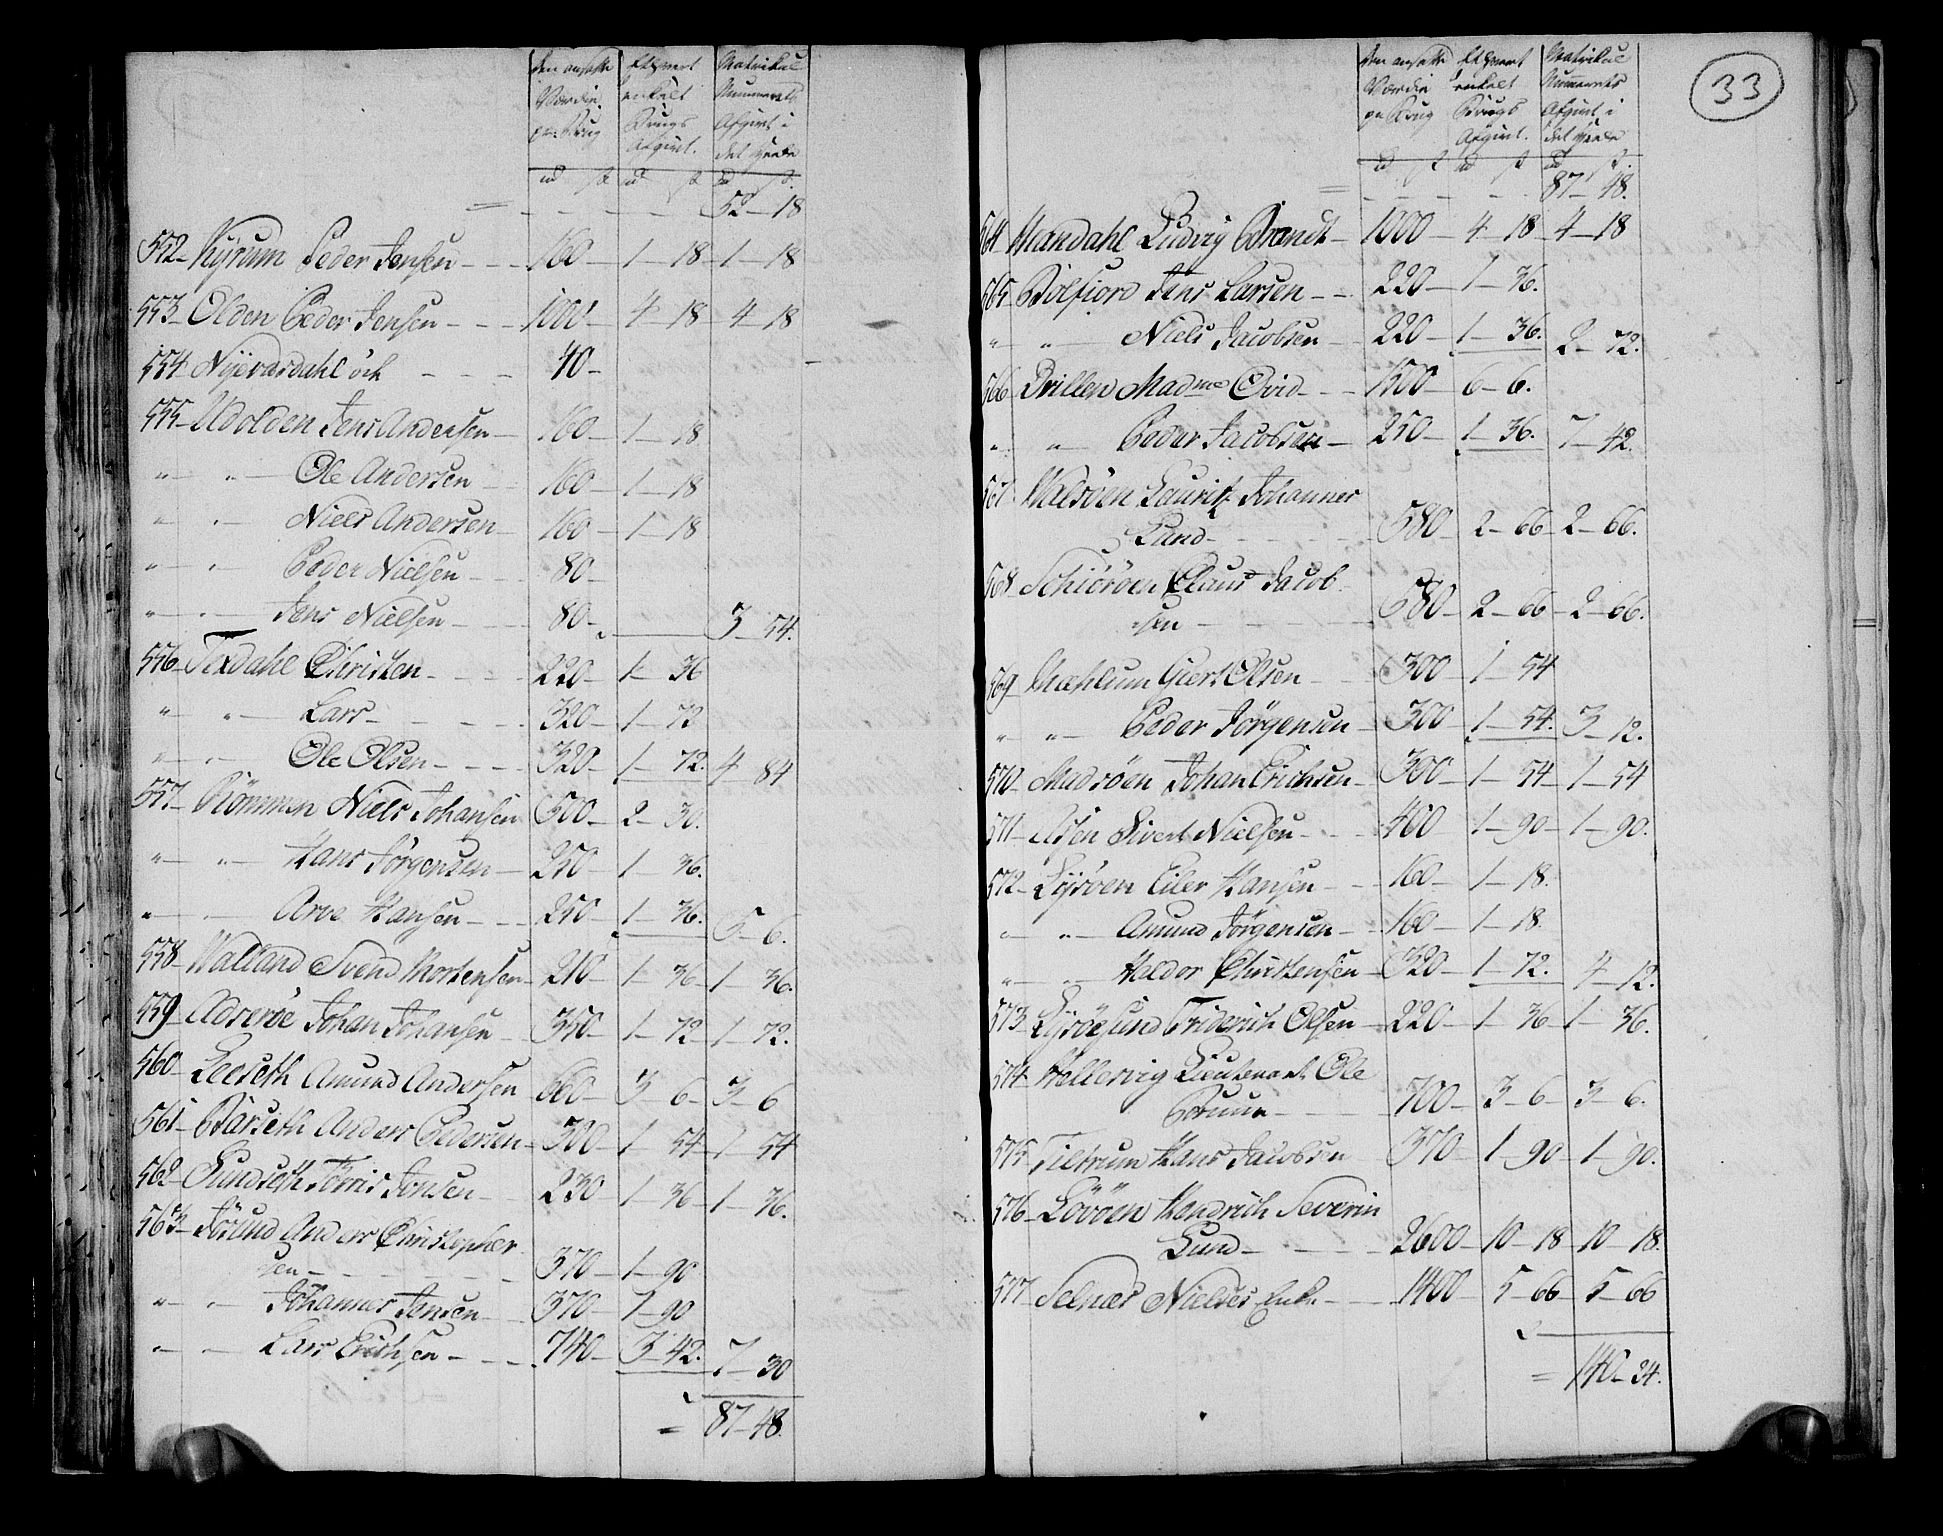 den ansatte Værdie pr: Brug | Ethvert enkelt Brugs Afgivt. | Matrikul Nummerets Afgivt i det heele
52 - 18
552 - Kyrum Peder Jensen - 160 - 1 - 18 - 1 - 18
553 - Olden Peder Jensen - 1000 - 4 - 18 - 4 - 18
554 - Nyevasdahl öde - 40 -
555 - Udolden Jens Andersen - 160 - 1 - 18
" - " - Ole Andersen - 160 - 1 - 18
" - " - Niels Andersen - 160 - 1 - 18
" - " - Peder Nielsen - 80 -
" - " - Jens Nielsen - 80 - 3 - 54.
556 - Texdahl Christen - 220 - 1 - 36
" - " - Lars - 320 - 1 - 72
" - " - Ole Olsen - 320 - 1 - 72. 4 - 84
557 - Römmen Niels Johansen 500 - 2 - 30.
" - " - Hans Jörgensen - 250 - 1 - 36.
" - " - Arve Hansen - 250 - 1 - 36. 5 - 6.
558 - Walland Svend Mortensen - 210 - 1 - 36 - 1 - 36.
559 - Adseröe Johan Johansen - 350 - 1 - 72 - 1 - 72.
560 - Leeseth Amund Andersen 660 - 3 - 6 - 3 - 6
561 - Barseth Anders Pedersen - 300 - 1 - 54 - 1 - 54
562 - Sundseth Torris Jonsen - 230 - 1 - 36 - 1 - 36.
563 - Jösund Anders Christopher
sen - 370 - 1 - 90
" - " - Johannes Jensen - 370 - 1 - 90
" - " - Lars Erichsen - 740 - 3 - 42. 7 - 30
= 87 - 48.
33
den ansatte Værdie pr Brug | Ethvert enkelt Brugs Afgivt. | Matrikul Nummerets Afgivt i det heele
87 - 48.
564 Mandahl Ludvig Brandt - 1000 - 4 - 18 - 4 - 18
565 Bolfiord Jens Larsen - 220 - 1 - 36.
" - " - Niels Jacobsen - 220 - 1 - 36. 2 - 72.
566 Drillen Madme Qvid - 1500 - 6 - 6.
" " Peder Jacobsen - 250 - 1 - 36. 7 - 42.
567 Valsöen Lauritz Johannes
Lund - 580 - 2 - 66 - 2 - 66.
568 Schiöröen Claus Jacob
sen - 580 - 2 - 66 - 2 - 66.
569 - Mæhlum Giert Olsen - 300 1 - 54
" - " - Peder Jörgensen - 300 - 1 - 54. 3 - 12.
570 - Madsöen Johan Erichsen - 300 - 1 - 54 - 1 - 54
571 - Asen Sivert Nielsen - 400 1 - 90 - 1 - 90.
572 - Lysöen Eiler Hansen - 160 - 1 - 18.
" - " - Amund Jörgensen - 160 - 1 - 18.
" - " - Haldor Christensen - 320 - 1 - 72. 4 - 12.
573 - Lysöesund Friderich Olsen - 220 - 1 - 36 1 - 36.
574 - Hellesvig Lieutenant Ole
Bruun - 700 - 3 - 6 - 3 - 6.
575 - Tiltrum Hans Jacobsen 370 - 1 - 90 - 1 - 90.
576 - Lövöen Hendrich Severin
Lund - 2600 - 10 - 18 - 10 - 18.
577 - Selnæs Nielses Enke - 1400 - 5 - 66 - 5 - 66
= 140 - 24.